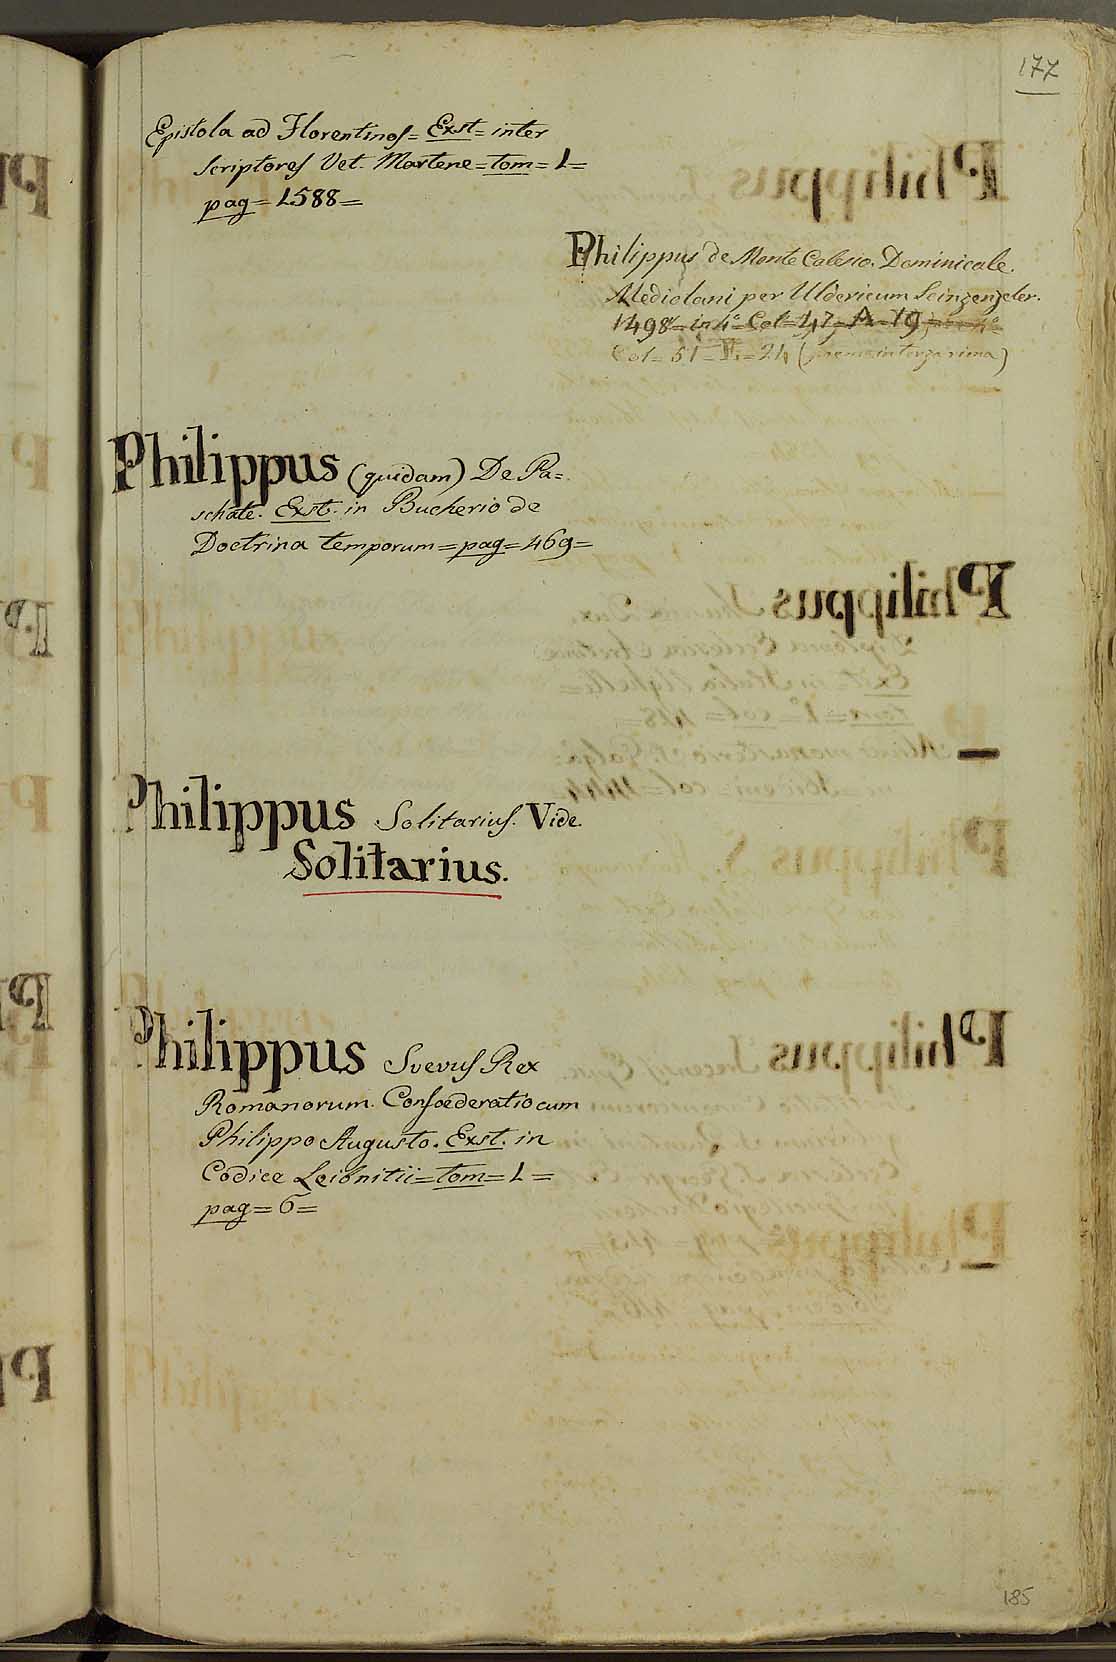 177
Epistola ad Florentinos = Exst = inter
scriptores Vet. Martene = tom = 1 =
pag = 1588 =
Philippus de Monte Calerio. Dominicale.
Mediolani per Uldericum Scinzenzeler.
1498 = in 4° Col = 47 = A = 19
Col = 51 = = 24 (
Philippus (quidam) De Pa=
schate. Exst. in Bucherio de
Doctrina temporum = pag = 469 =
Philippus Solitarius. Vide.
Solitarius.
Philippus Svevus Rex
Romanorum. Confoederatio cum
Philippo Augusto. Exst. in
Codice Leibnitii = tom = 1 =
pag = 6 =
185